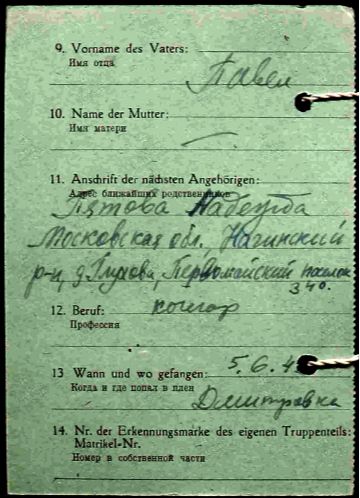 9. Vorname des Vaters:
Имя отца
Павел
10. Name der Mutter:
Имя матери
—
11. Anschrift der nächsten Angehörigen:
Адрес ближайших родственников
Пятова Надежда
Московская обл. Нагинский
р-н, д. Глухова, Первомайский поселок
340.
12. Beruf:
Профессия
кочегар
13 Wann und wo gefangen:
Когда и где попал в плен
5. 6. 4
Дмитровка
14. Nr. der Erkennungsmarke des eigenen Truppenteils:
Matrikel-Nr.
Номер в собственной части